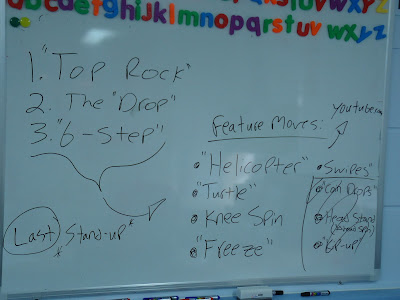 abcdefghijklmnopqrstuvwxyz
1. "Top Rock"
2. The "Drop"
3. "6-Step"
Last "Stand-up"
youtube
Feature Moves:
"Helicopter"
"Turtle"
Knee Spin
"Freeze"
"Swipes"
Drops"
Head Stand
"Kip-up"